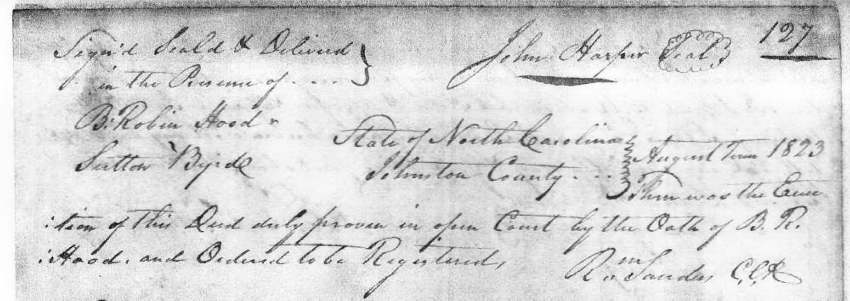 127
Sign'd Seald & Delivered
in the Presence of - - - -
John Harper Seal
B. Robin Hood
Sutton Byrd
State of North Carolina
Johnston County - - -
August Term 1823
Then was the Execu
:tion of this Deed duly proven in open Court by the Oath of B. R.
:Hood. and Ordered to be Registered,
Rm Sanders C,C,